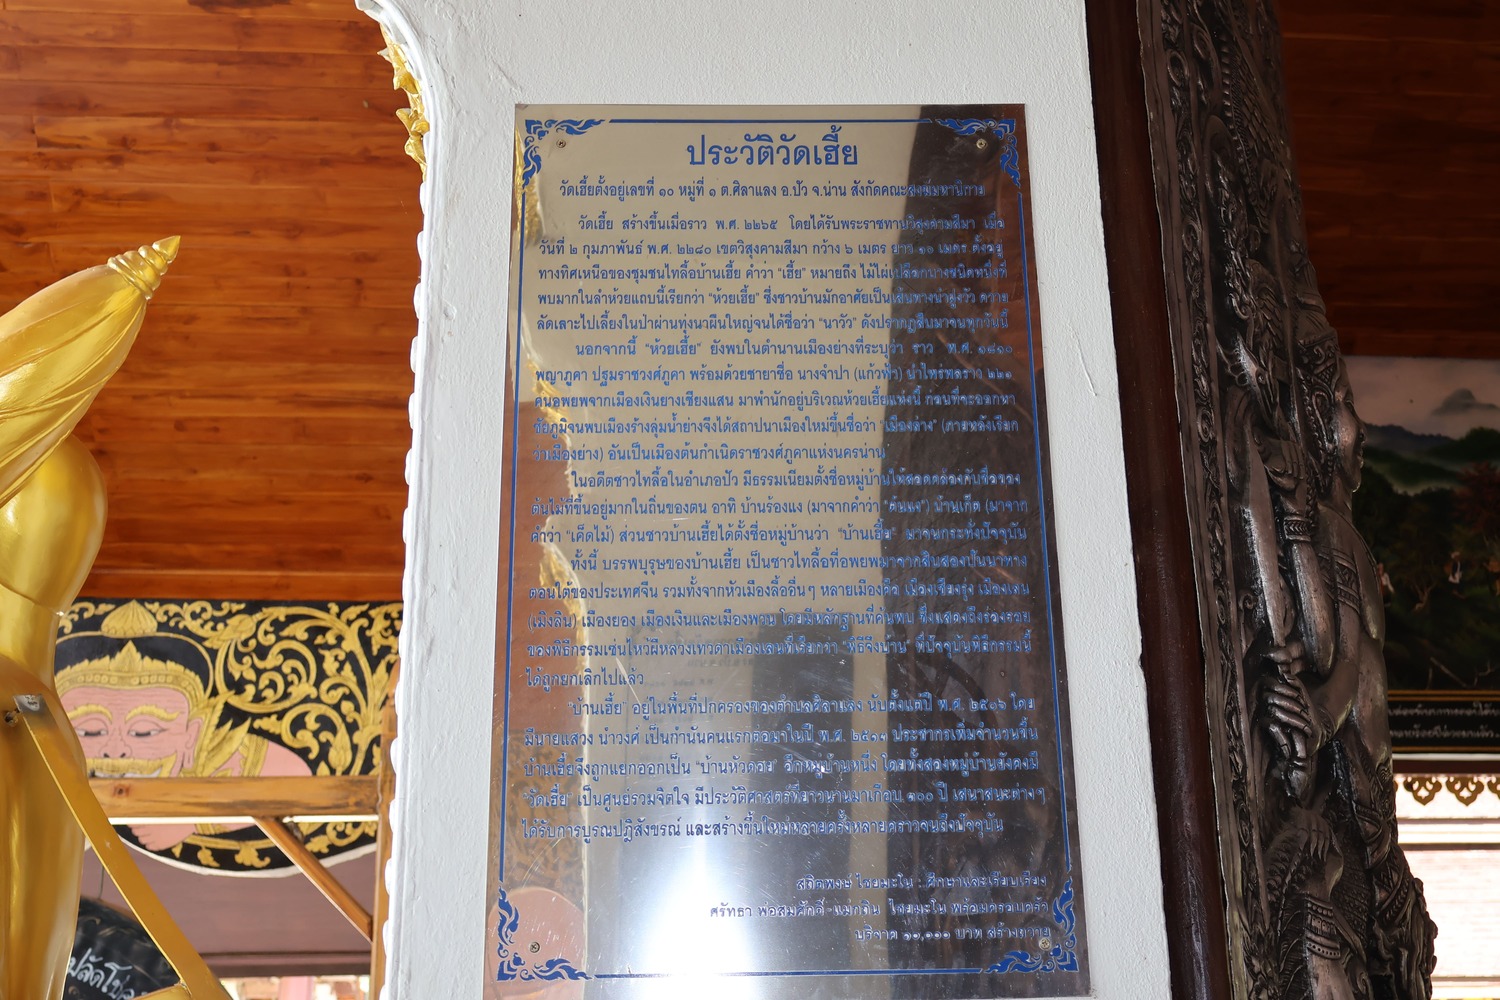 ประวัติวัดเฮี้ย
วัดเฮี้ยตั้งอยู่เลขที่ ๑๐ หมู่ที่ ๑ ต.ศิลาแลง อ.ปัว จ.น่าน สังกัดคณะสงฆ์มหานิกาย
วัดเฮี้ย สร้างขึ้นเมื่อราว พ.ศ. ๒๒๖๕ โดยได้รับพระราชทานวิสุงคามสีมา เมื่อ
วันที่ ๒ กุมภาพันธ์ พ.ศ. ๒๒๘๐ เขตวิสุงคามสีมา กว้าง ๖ เมตร ยาว ๑๐ เมตร ตั้งอยู่
ทางทิศเหนือของชุมชนไทลื้อบ้านเฮี้ย คำว่า "เฮี้ย" หมายถึง ไม้ไผ่เปลือกบางชนิดหนึ่งที่
พบมากในลำห้วยแถบนี้เรียกว่า "ห้วยเฮี้ย" ซึ่งชาวบ้านมักอาศัยเป็นเส้นทางนำฝูงวัว ควาย
ลัดเลาะไปเลี้ยงในป่าผ่านทุ่งนาผืนใหญ่จนได้ชื่อว่า "นาวัว" ดังปรากฏสืบมาจนทุกวันนี้
นอกจากนี้ "ห้วยเฮี้ย" ยังพบในตำนานเมืองย่างที่ระบุว่า ราว พ.ศ. ๑๘๑๐
พญาภูคา ปฐมราชวงศ์ภูคา พร้อมด้วยชายาชื่อ นางจำปา (แก้วฟ้า) นำไพร่พลราว ๒๒๑
คนอพยพจากเมืองเงินยางเชียงแสน มาพำนักอยู่บริเวณห้วยเฮี้ยแห่งนี้ ก่อนที่จะออกหา
ชัยภูมิจนพบเมืองร้างลุ่มน้ำย่างจึงได้สถาปนาเมืองใหม่ขึ้นชื่อว่า "เมืองล่าง" (ภายหลังเรียก
ว่าเมืองย่าง) อันเป็นเมืองต้นกำเนิดราชวงศ์ภูคาแห่งนครน่าน
ในอดีตชาวไทลื้อในอำเภอปัว มีธรรมเนียมตั้งชื่อหมู่บ้านให้สอดคล้องกับชื่อของ
ต้นไม้ที่ขึ้นอยู่มากในถิ่นของตน อาทิ บ้านร้องแง (มาจากคำว่า "ต้นแง") บ้านเก็ต (มาจาก
คำว่า "เค็ดไม้) ส่วนชาวบ้านเฮี้ยได้ตั้งชื่อหมู่บ้านว่า "บ้านเฮี้ย" มาจนกระทั่งปัจจุบัน
ทั้งนี้ บรรพบุรุษของบ้านเฮี้ย เป็นชาวไทลื้อที่อพยพมาจากสิบสองปันนาทาง
ตอนใต้ของประเทศจีน รวมทั้งจากหัวเมืองลื้ออื่นๆ หลายเมืองคือ เมืองเชียงรุ่ง เมืองเลน
(เมิงลิน) เมืองยอง เมืองเงินและเมืองพวน โดยมีหลักฐานที่ค้นพบ ซึ่งแสดงถึงร่องรอย
ของพิธีกรรมเซ่นไหว้ผีหลวงเทวดาเมืองเลนที่เรียกว่า "พิธีจึงบ้าน" ที่ปัจจุบันพิธีกรรมนี้
ได้ถูกยกเลิกไปแล้ว
"บ้านเฮี้ย" อยู่ในพื้นที่ปกครองของตำบลศิลาแลง นับตั้งแต่ปี พ.ศ. ๒๔๐๖ โดย
มีนายแสวง นำวงศ์ เป็นกำนันคนแรกต่อมาในปี พ.ศ. ๒๕๑๑ ประชากรเพิ่มจำนวนขึ้น
บ้านเฮี้ยจึงถูกแยกออกเป็น "บ้านหัวดอย" อีกหมู่บ้านหนึ่ง โดยทั้งสองหมู่บ้านยังคงมี
"วัดเฮี้ย" เป็นศูนย์รวมจิตใจ มีประวัติศาสตร์ที่ยาวนานมาเกือบ ๓๐๐ ปี เสนาสนะต่างๆ
ได้รับการบูรณปฏิสังขรณ์ และสร้างขึ้นใหม่หลายครั้งหลายคราวจนถึงปัจจุบัน
สถิตพงษ์ ไชยมะโน : ศึกษาและเรียบเรียง
ศรัทธา พ่อสมศักดิ์-แม่กจิน ไชยมะโน พร้อมครอบครัว
บริจาค ๑๐,๐๐๐ บาท สร้างถวาย
ปลัดโช